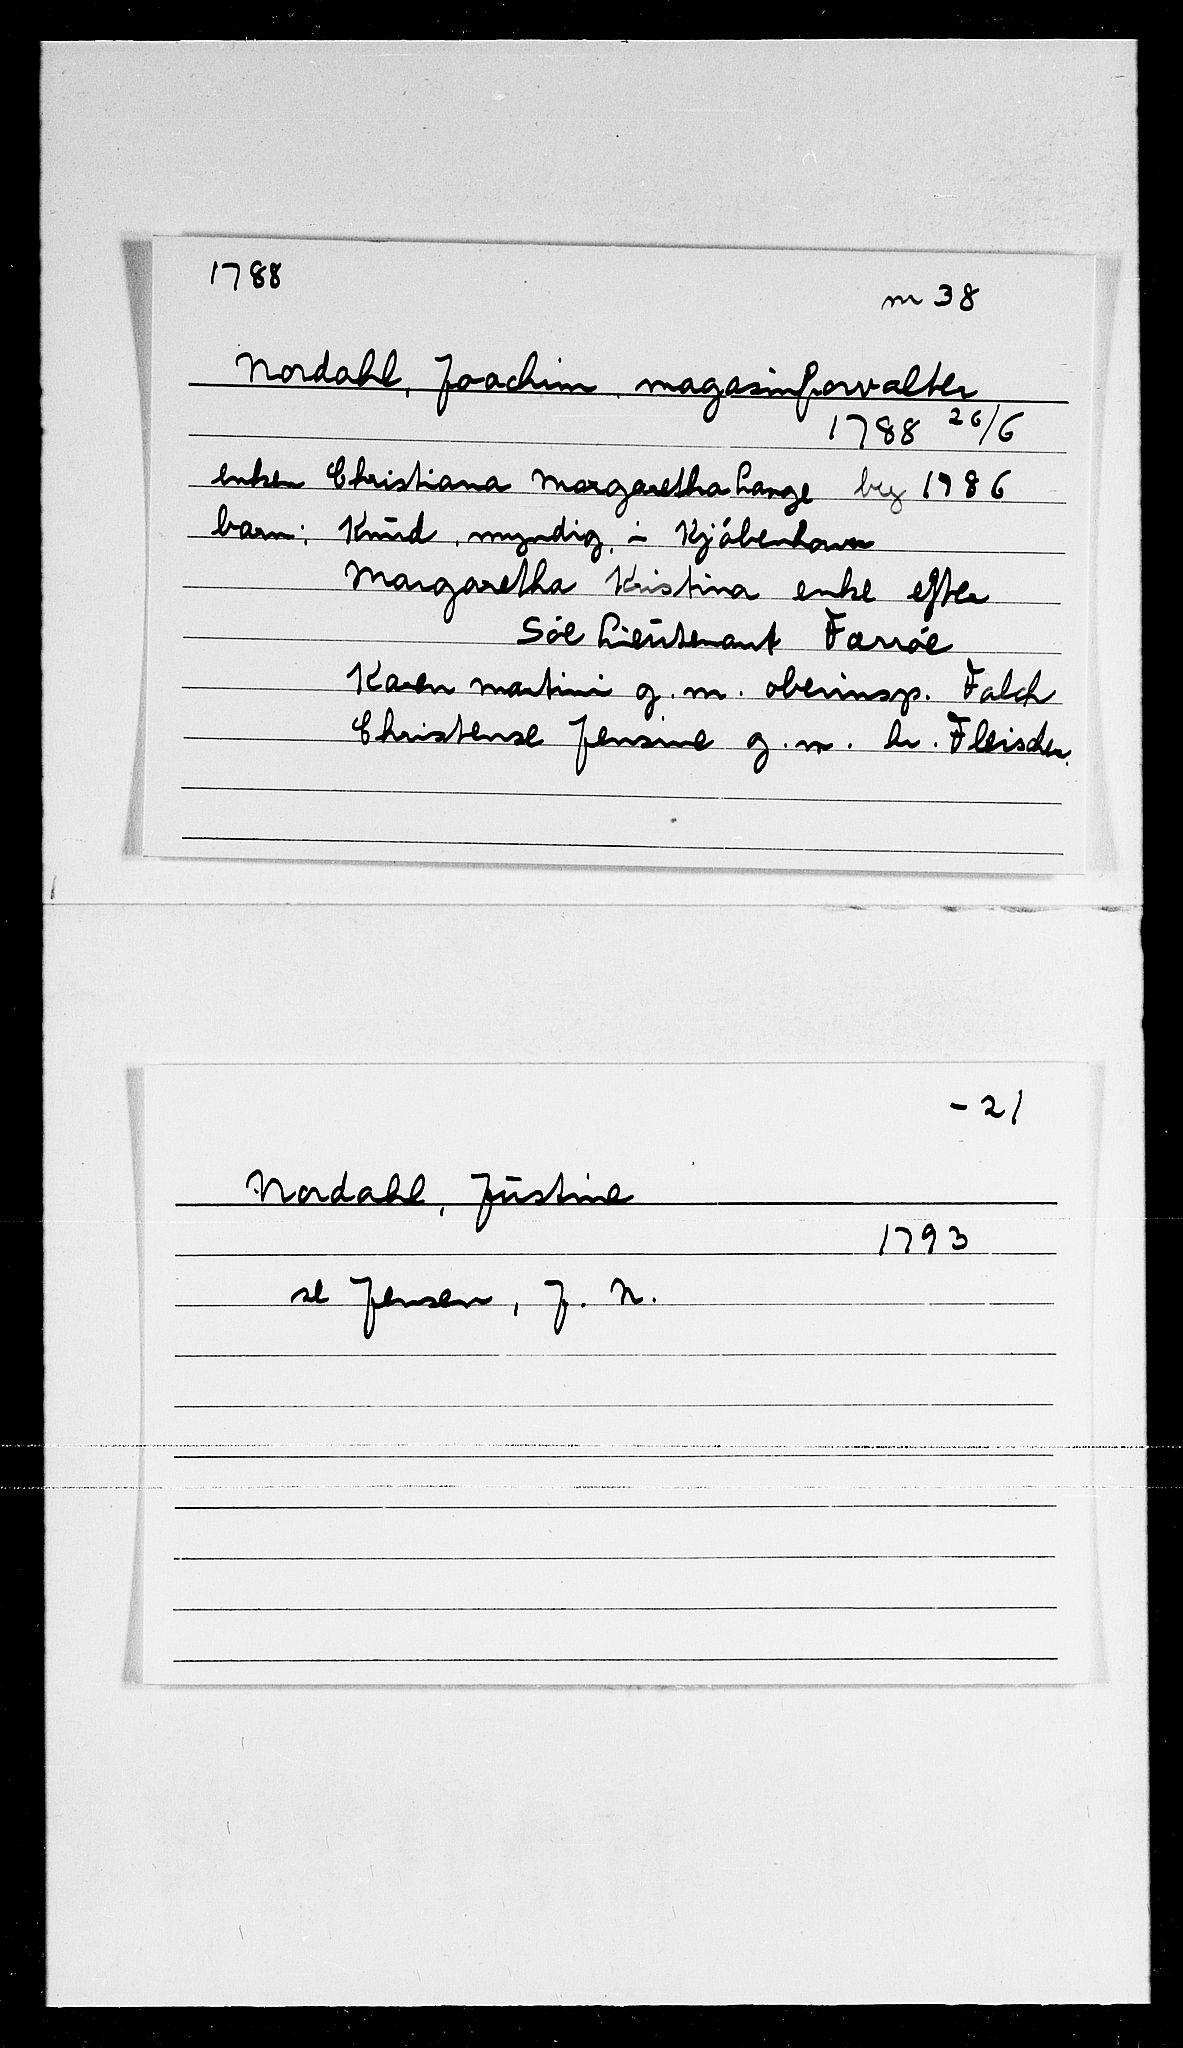 1788
m 38
Nordahl, Joachim, magasinforvalter
1788 26/6
enken Christiana Margaretha Lange beg 1986
barn: Knud, myndig, i Kjöbenhavn
Margaretha Kristina enke efter
Söe Lieutenant Færröe
Karen Martini g. m. oberinsp. Falch
Christense Jensine g. m. hr. Fleischer.
- 21
Nordahl, Justine
1793
se Jensen, J. N.